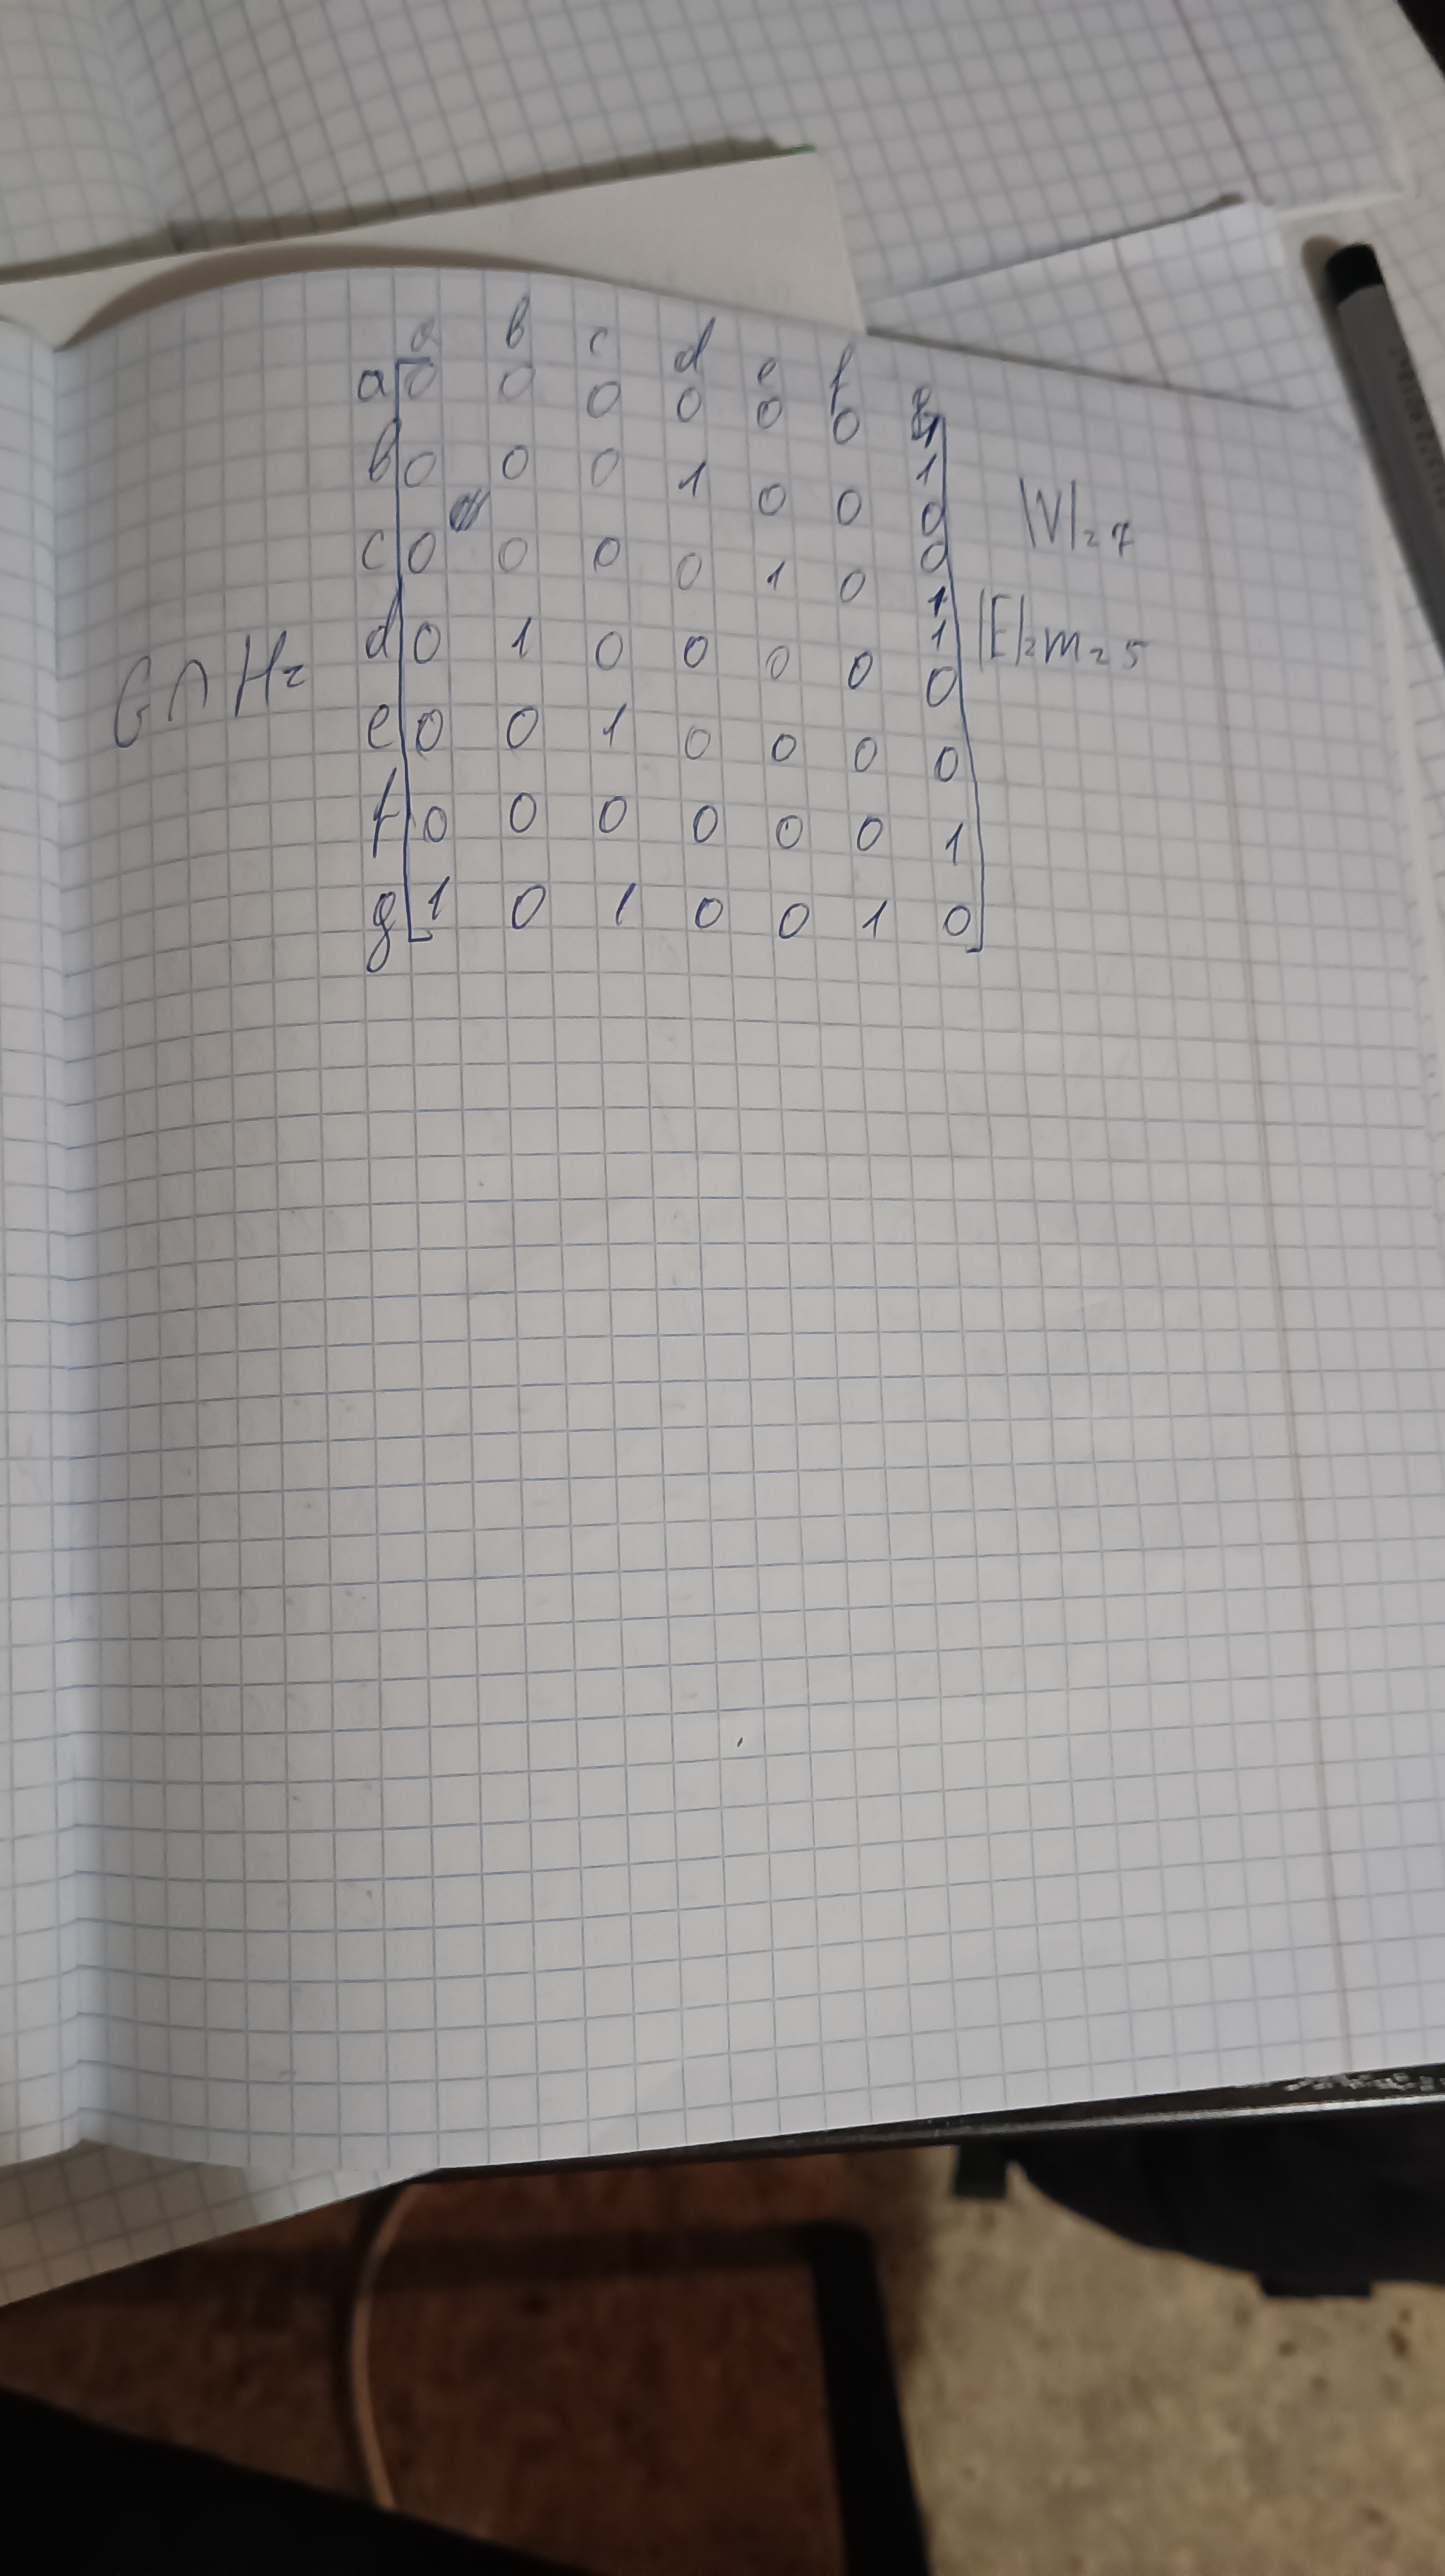 a b c d e f g
a 0 0 0 0 0 0 1
b 0 0 0 1 0 0 0
c 0 0 0 0 1 0 1
G∩H= d 0 1 0 0 0 0 0
e 0 0 1 0 0 0 0
f 0 0 0 0 0 0 1
g 1 0 1 0 0 1 0
|V|=7
|E|=m=5